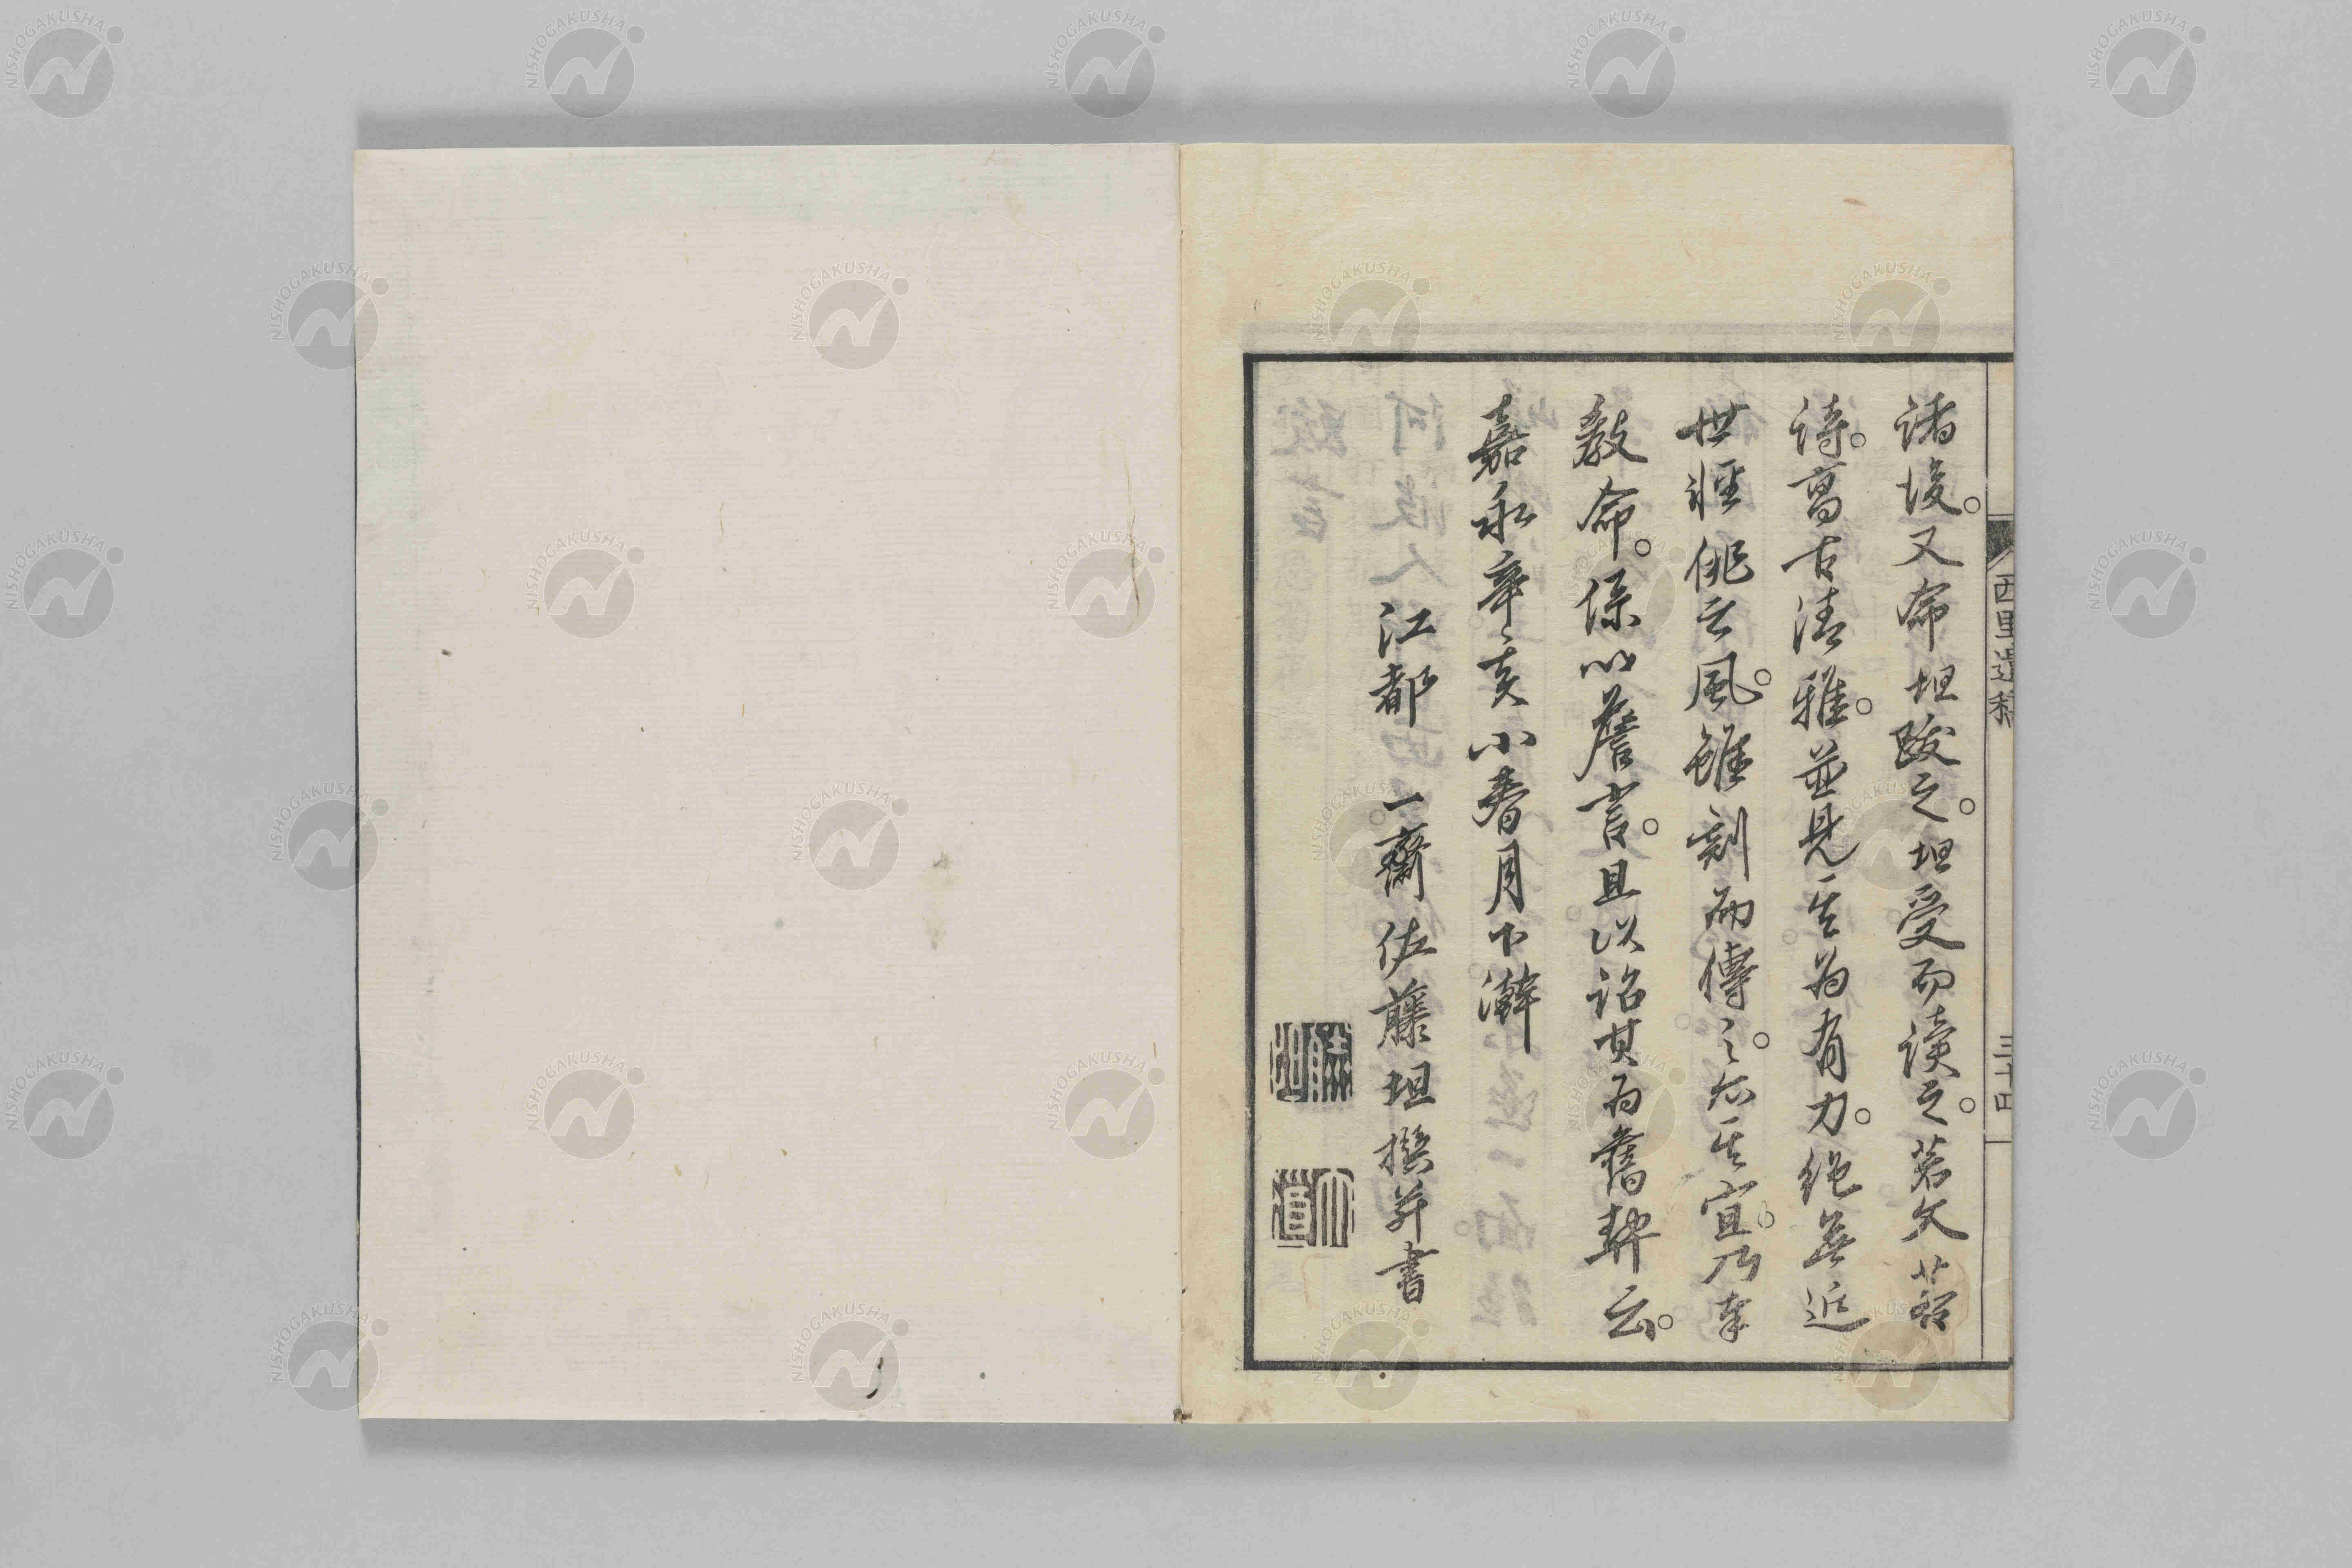 諸後。又命坦跋之。坦受而讀之。若文若
詩。高古清雅。並見其為有力。絶無近
世輕佻之風。雖刻而傳之。亦其宜。乃奉
教命。係以蕪言。且以諗其為舊契云。
嘉永辛亥小春月下澣
江都 一齋佐藤坦撰并書
西里遺稿
三十四
NISHOGAKUSHA